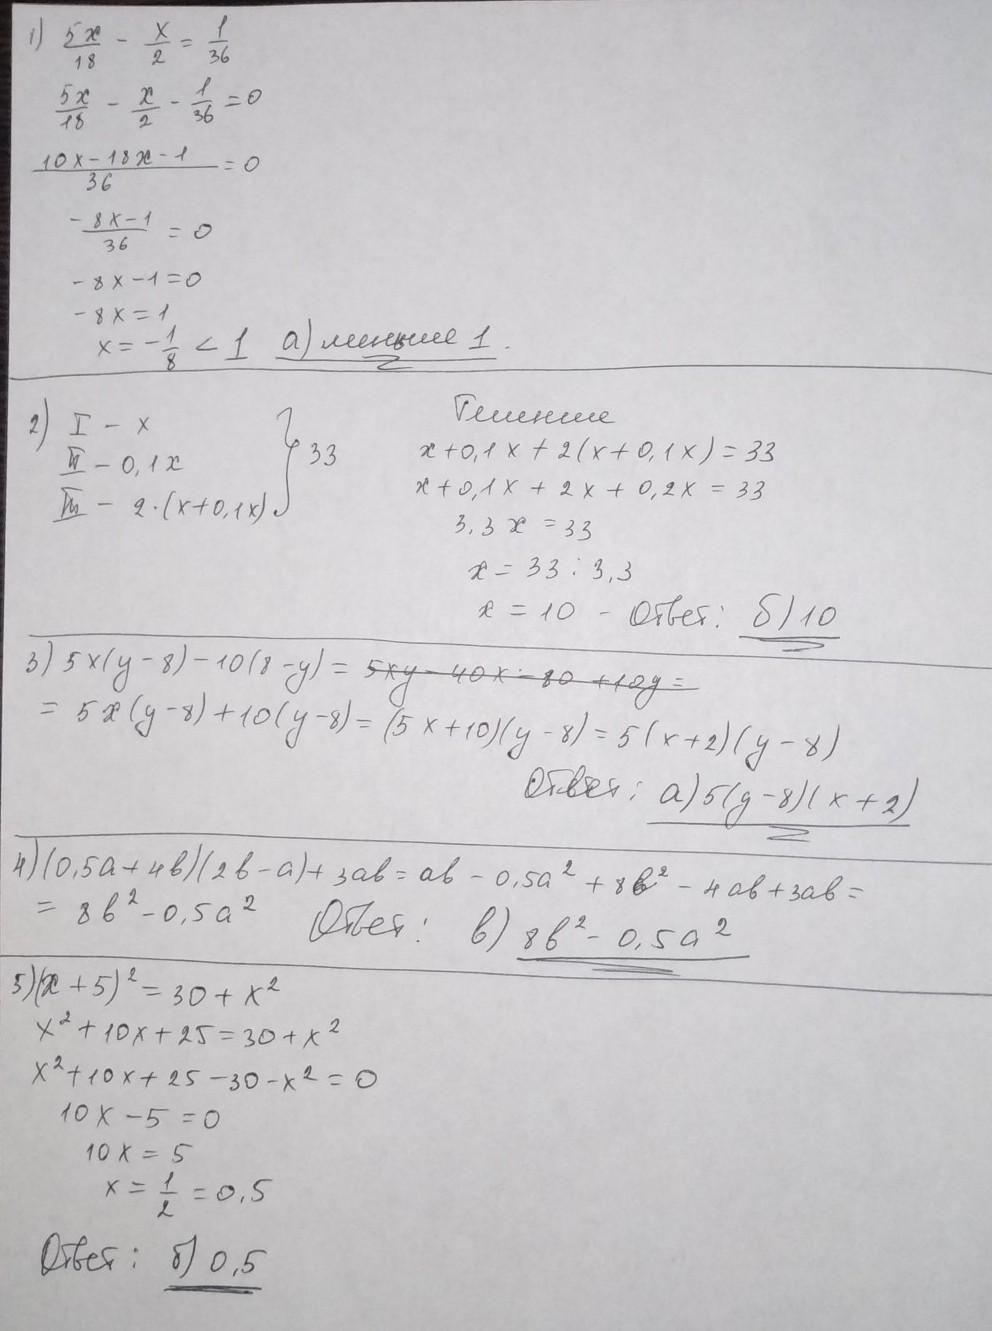 1) 5x/18 - x/2 = 1/36
5x/18 - x/2 - 1/36 = 0
10x-18x-1/36 = 0
-8x-1/36 = 0
-8x-1=0
-8x=1
x=-1/8 < 1 а) меньше 1.
2) I - x
II - 0,1x
III - 2·(x+0,1x)
33
Решение
x+0,1x+2(x+0,1x)=33
x+0,1x+2x+0,2x=33
3,3x=33
x=33:3,3
x=10 - Ответ: б) 10
3) 5x(y-8)-10(8-y)= 5xy-40x-80+10y=
= 5x(y-8)+10(y-8)=(5x+10)(y-8)=5(x+2)(y-8)
Ответ: а) 5(y-8)(x+2)
4) (0,5a+4b)(2b-a)+3ab=ab-0,5a²+8b²-4ab+3ab=
= 8b²-0,5a² Ответ: в) 8b²-0,5a²
5) (x+5)²=30+x²
x²+10x+25=30+x²
x²+10x+25-30-x²=0
10x-5=0
10x=5
x=1/2=0,5
Ответ: б) 0,5